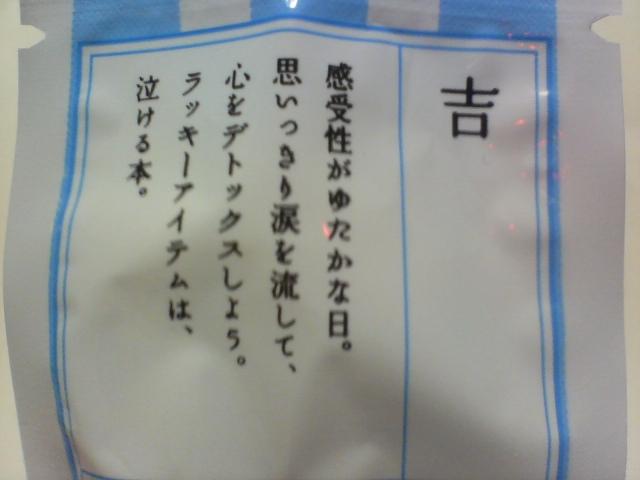 吉
感受性がゆたかな日。
思いっきり涙を流して、
心をデトックスしよう。
ラッキーアイテムは、
泣ける本。